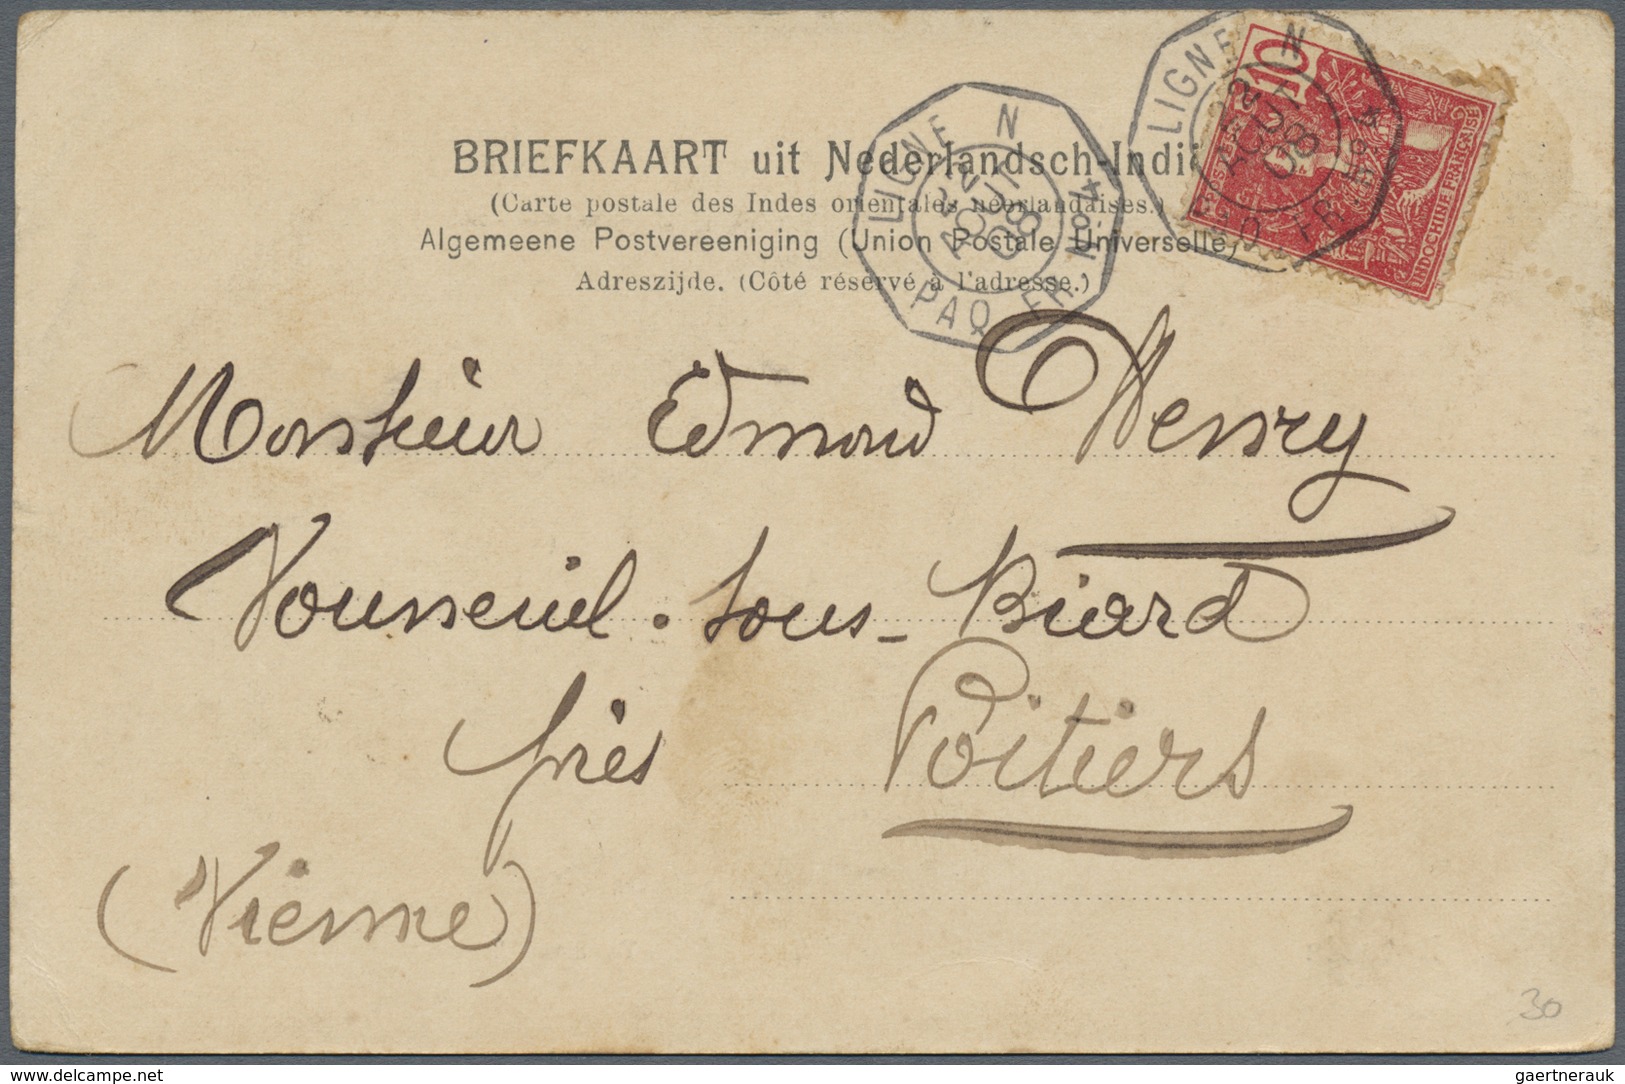 BRIEFKAART uit Nederlandsch-Indië
(Carte postale des Indes orientales néerlandaises.)
Algemeene Postvereeniging (Union Postale Universelle)
Adreszijde. (Côté réservé à l'adresse.)
LIGNE N
2
AOUT
08
PAQ FR Nº 4
LIGNE N
2
AOUT
08
PAQ FR Nº 4
10
POSTES
INDOCHINE FRANÇAISE
Monsieur Edmond Henry
Vouneuil-sous-Biard
près Poitiers
(Vienne)
30
delcampe.net
gaertnerauk